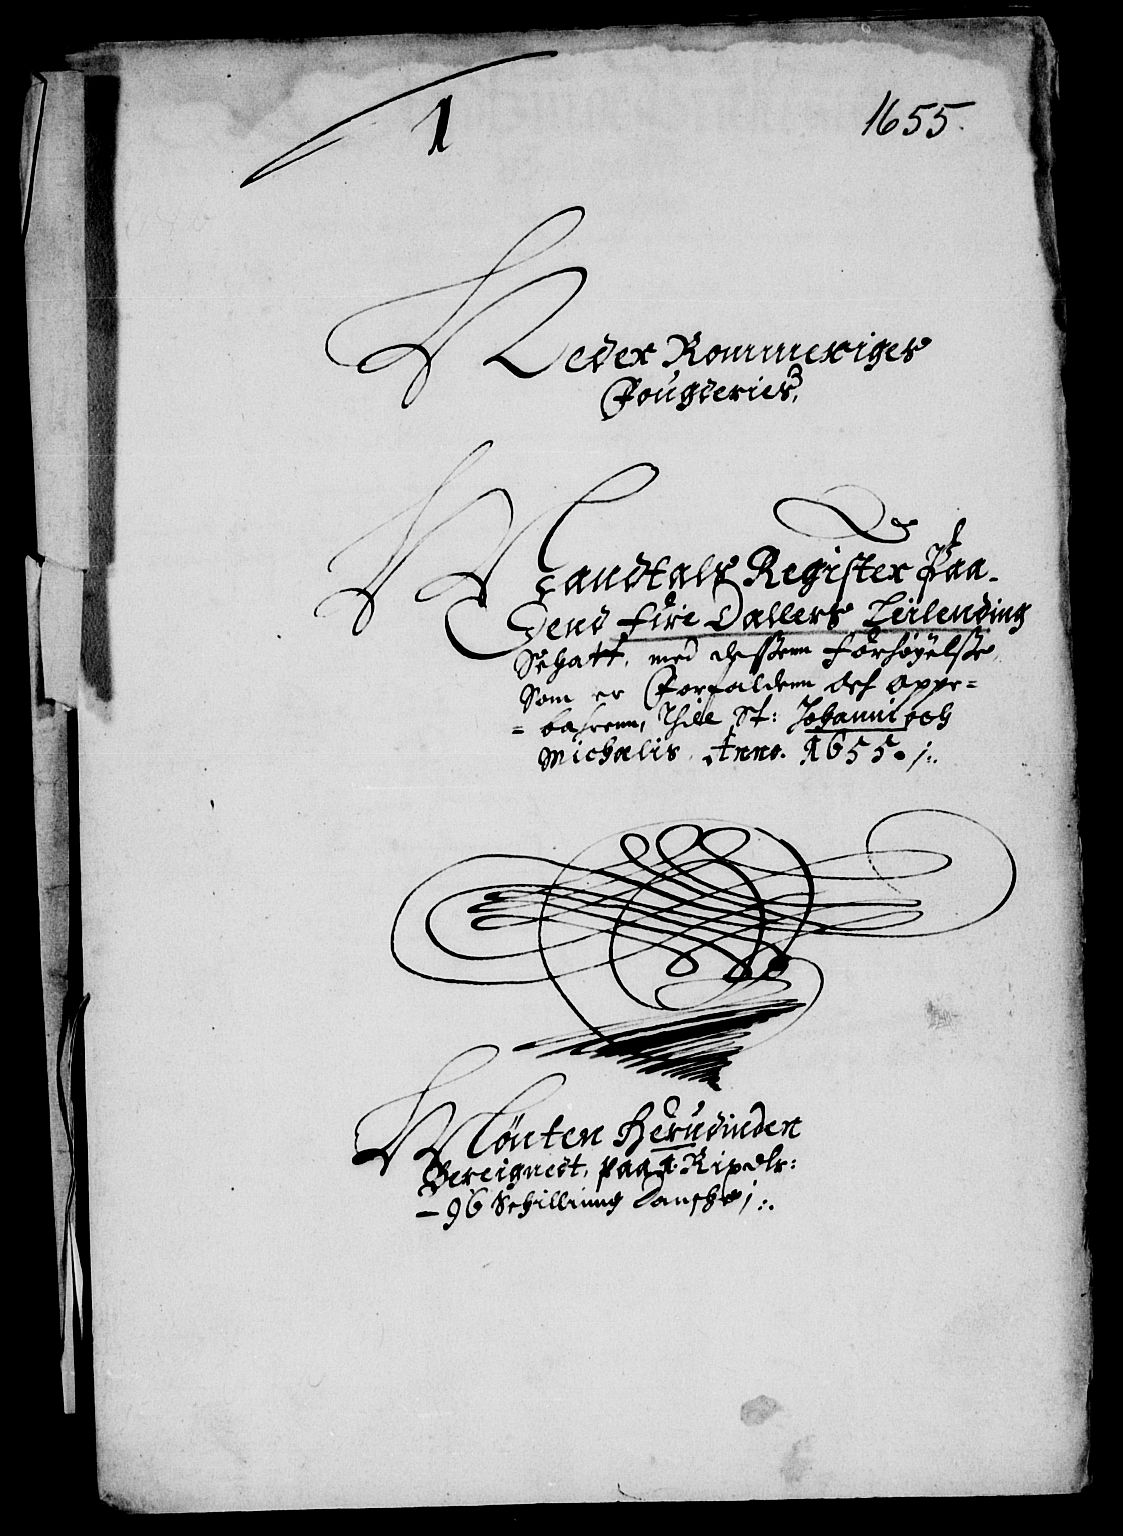 1
1655.
Neder Rommeriges
Fougderies,
Mandtals Register Paa
Dend fire Dallers Leilending
Schatt, med dessen Forhøyelse,
Som er Forfalden och oppe=
=baaren, Thill St: Johanni och
Michælis, Anno. 1655. /:.
Mønten herudinden
Bereignedt, paa 1 Rixdlr:
- 96 Schilling Danske /:.